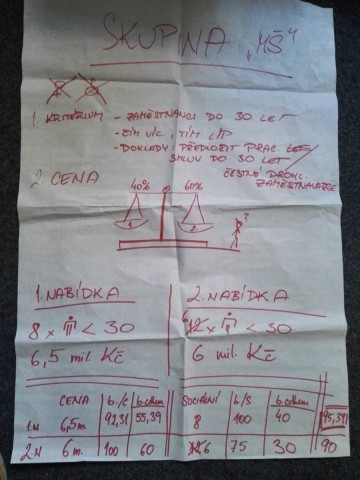 SKUPINA „MŠ“
1. KRITÉRIUM - ZAMĚSTNANCI DO 30 LET
- ČÍM VÍC, TÍM LÍP
- DOKLADY: PŘEDLOŽIT PRAC.
SMLUV DO 30 LET/
ČESTNÉ PROHL.
ZAMĚSTNAVATELE
2. CENA
40% 60%
?
1. NABÍDKA
8 x < 30
6,5 mil. Kč
2. NABÍDKA
6 x < 30
6 mil. Kč
CENA b./c b.celkem
1.N 6,5m. 92,31 55,39
2.N 6m. 100 60
SOCIÁLNÍ b/S b.celkem
8 100 40 95,39
6 75 30 90